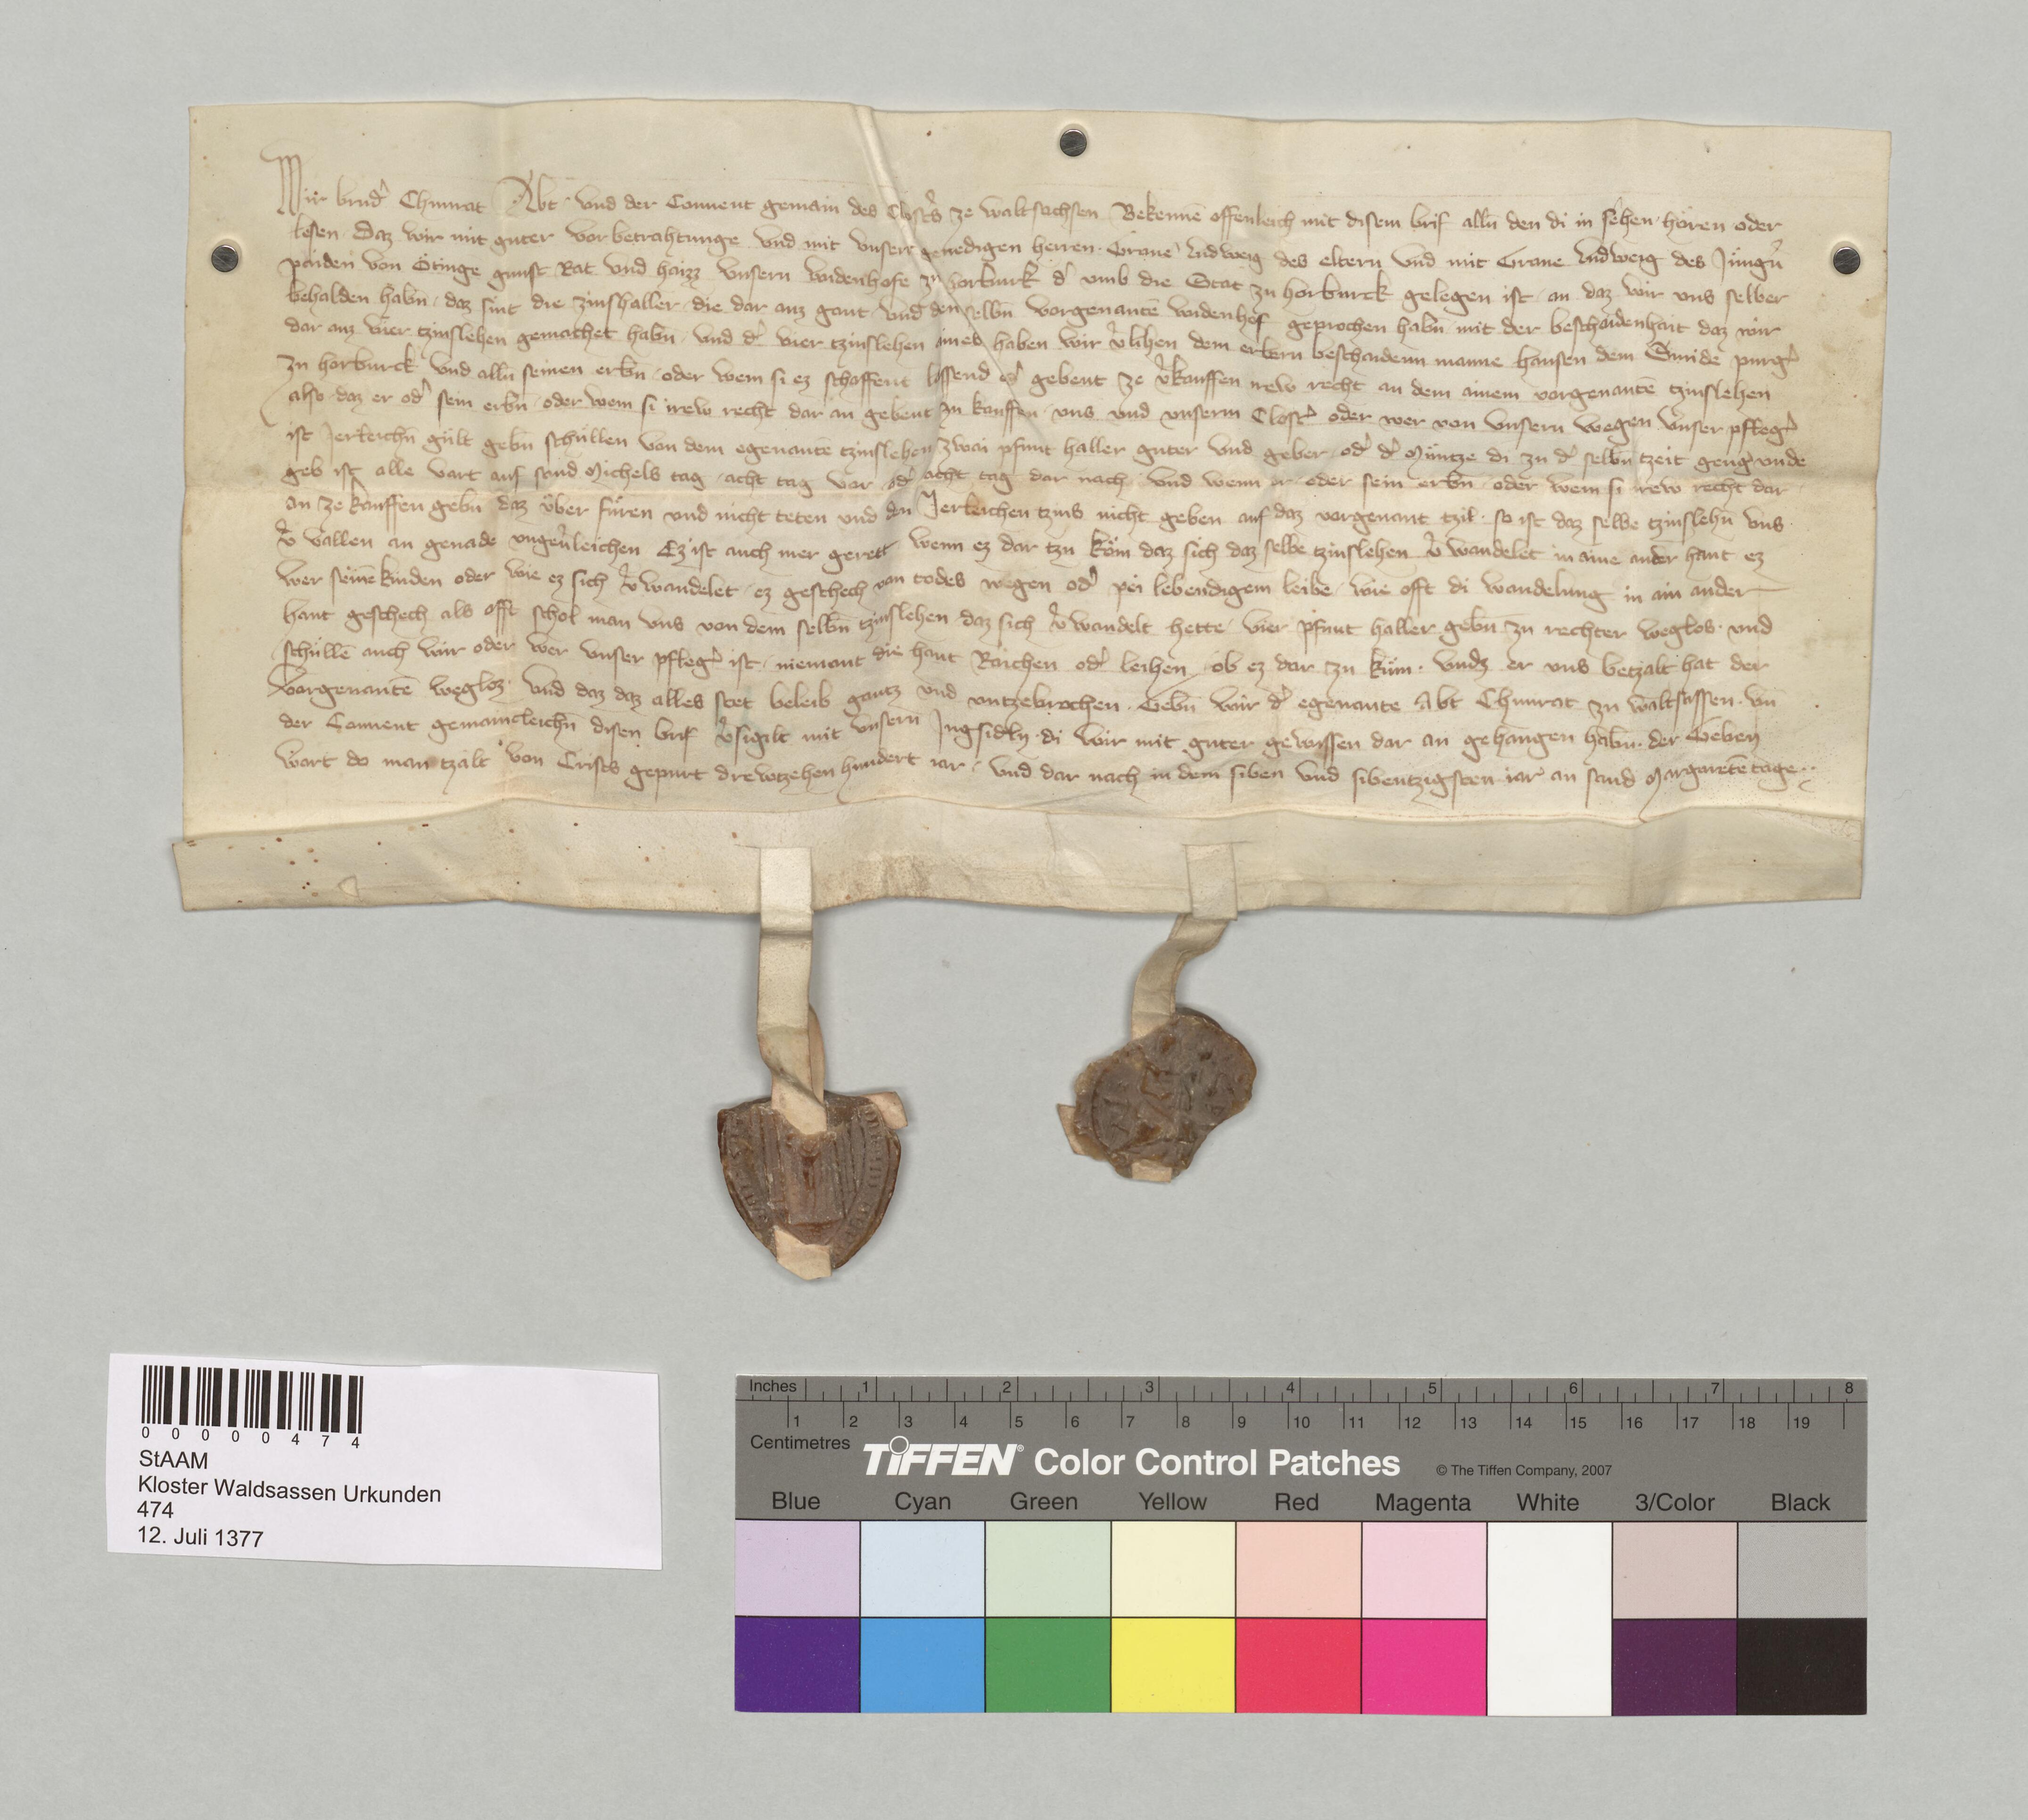 Wir brud' Chunrat Abt und der Conuent gemain des Closts' ze waltsachsen Bekennē offenleich mit disem brif alln den di in sehen hören oder
lesen Daz wir mit guter vor betrahtunge vnd mit vnserr genedigen herren Graue Ludweig des eltern vnd mit Graue Ludweig des Jüngn'
paiden von Ötinge gunst Rat vnd haizz vnsern widenhofe zu horburk d' vmb die Stat zu horburck gelegen ist an daz wir vns selber
behalden habn daz sint die zinshaller die dar auz gant vnd den selbn vorgenantē widenhof geprochen habn mit der beschaidenhait daz wir
dar auz vier tzinslehen gemachet habn vnd d' vier tzinslehen aines haben wir v'lihen dem erbern beschaidenn manne hansen dem purg'
zu horburck vnd alln seinen erbn oder wem si ez schaffent lassend od' gebent ze v'kauffen irew recht an dem ainem vorgenantē tzinslehen
also daz er od' sein erbn oder wem si irew recht dar an gebent zu kauffen vns vnd vnserm Clost' oder wer von vnsern wegen vnser pfleg'
ist Jerleichn gült gebn schullen von dem egenantē tzinslehen zwai pfunt haller guter vnd geber od' d' Müntze di zu d' selbn tzeit geng vnde
geb ist alle vart auf sand Michels tag acht tag vor od' acht tag dar nach vnd wenn er oder sein erbn oder wem si irew recht dar
an ze kauffen gebn daz über füren vnd nicht teten vnd den Jerleichen tzins nicht geben auf daz vorgenant tzil so ist daz selbe tzinslehn vns
v' vallen an genade vngeu'leichen Ez ist auch mer gerett wenn ez dar tzu köm daz sich daz selbe tzinslehen v' wandelet in aine ander hant ez
wer seinē kinden oder wie ez sich v' wandelet ez geschech von todes wegen od' pei lebendigem leibe wie offt di wandelung in ain ander
hant geschech als offt schol man vns von dem selbn tzinslehen daz sich v' wandelt hette vier pfunt haller gebn zu rechter weglos vnd
schullē auch wir oder wer vnser pfleg' ist niemant die hant Raichen od' leihen ob ez dar zu küm er vns betzalt hat der
vorgenantē wegloz vnd daz daz alles stet beleib gantz vnd vntzebrochen Gebn wir d' egenante Abt Chunrat zu waltsassen vn
der Conuent gemaincleichn disen brif v'sigilt mit vnsern Jngsideln di wir mit guter gewissen dar an gehangen habn der Geben
wart do man tzalt von Crists gepurt drewtzehen hundert iar vnd dar nach in dem siben vnd sibentzigsten iar an sand Margaretē tage
0 0 0 0 0 4 7 4
StAAM
Kloster Waldsassen Urkunden
474
12. Juli 1377
Inches 1 2 3 4 5 6 7 8
1 2 3 4 5 6 7 8 9 10 11 12 13 14 15 16 17 18 19
Centimetres
TIFFEN® Color Control Patches © The Tiffen Company, 2007
Blue Cyan Green Yellow Red Magenta White 3/Color Black